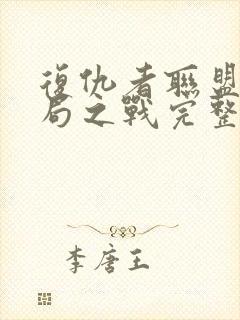 復仇者聯盟
局之戰完整
李唐王